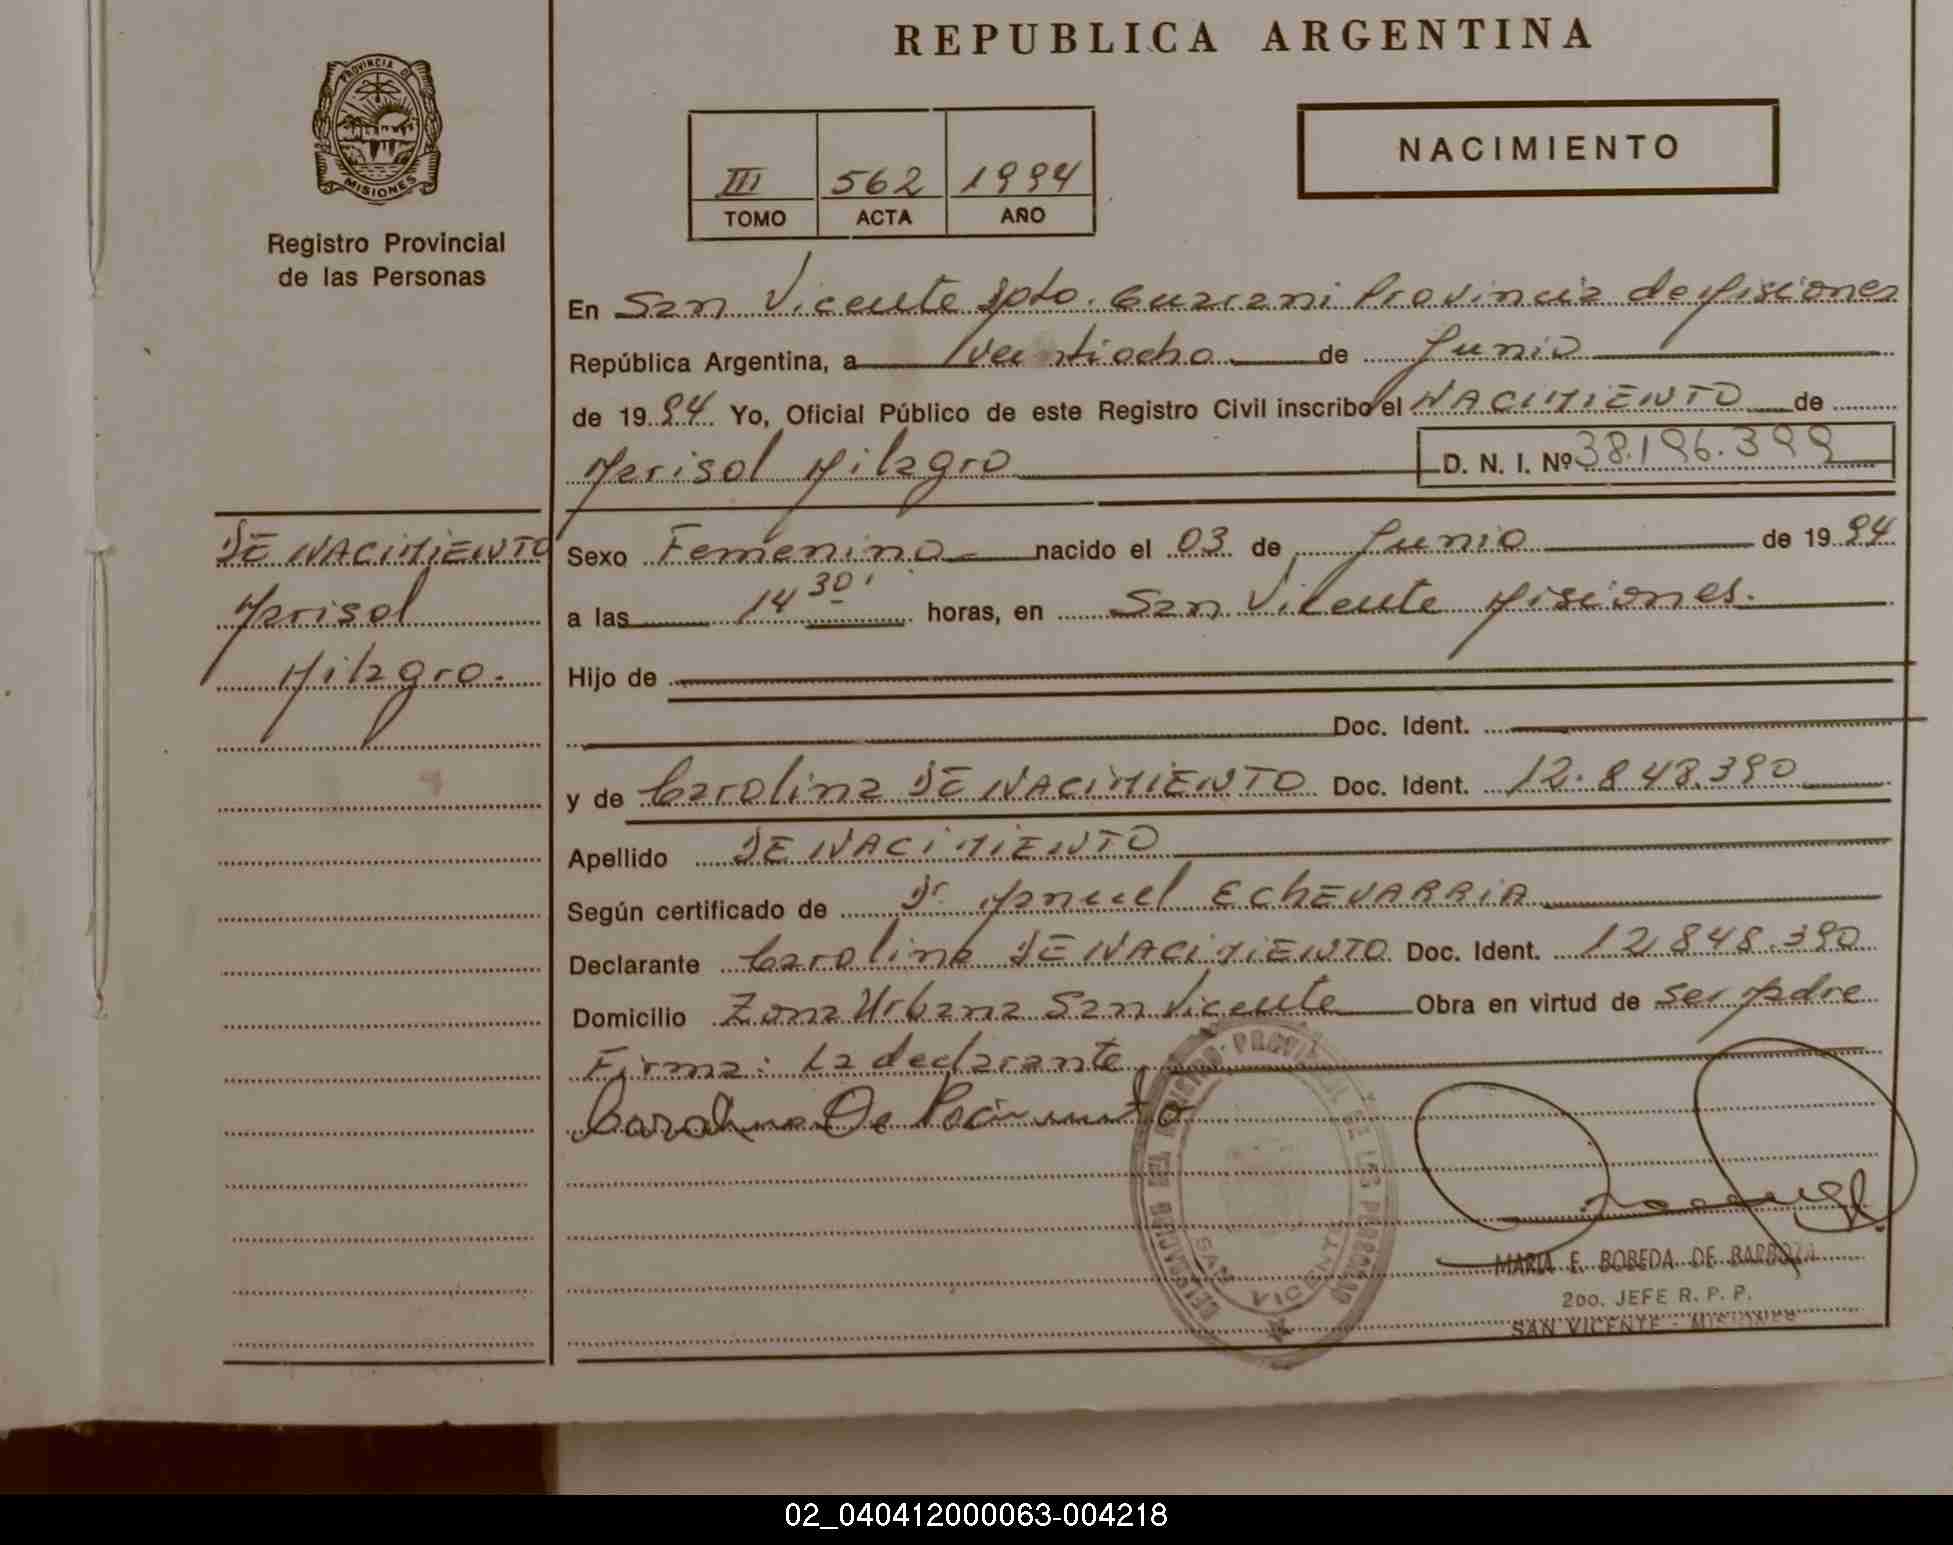 REPUBLICA ARGENTINA
PROVINCIA DE
MISIONES
Registro Provincial
de las Personas
III 562 1994
TOMO ACTA AÑO
NACIMIENTO
En San Vicente Dpto. Guarani Provincia de Misiones
República Argentina, a Veintiocho de Junio
de 1994 Yo, Oficial Público de este Registro Civil inscribo el NACIMIENTO de
Marisol Milagro D. N. I. Nº 38.196.399
DE NACIMIENTO
Marisol
Milagro.
Sexo Femenino nacido el 03 de Junio de 1994
a las 14 30' horas, en San Vicente Misiones.
Hijo de
Doc. Ident.
y de Carolina DE NACIMIENTO Doc. Ident. 12.848.390
Apellido DE NACIMIENTO
Según certificado de Dr. Manuel ECHEVARRIA
Declarante Carolina DE NACIMIENTO Doc. Ident. 12.848.390
Domicilio Zona Urbana San Vicente Obra en virtud de ser Madre
Firma: La declarante
Carolina De Nacimiento
SAN VICENTE
MARIA E. BOBEDA DE BARBOZA
2do. JEFE R. P. P.
SAN VICENTE - MISIONES
02_040412000063-004218